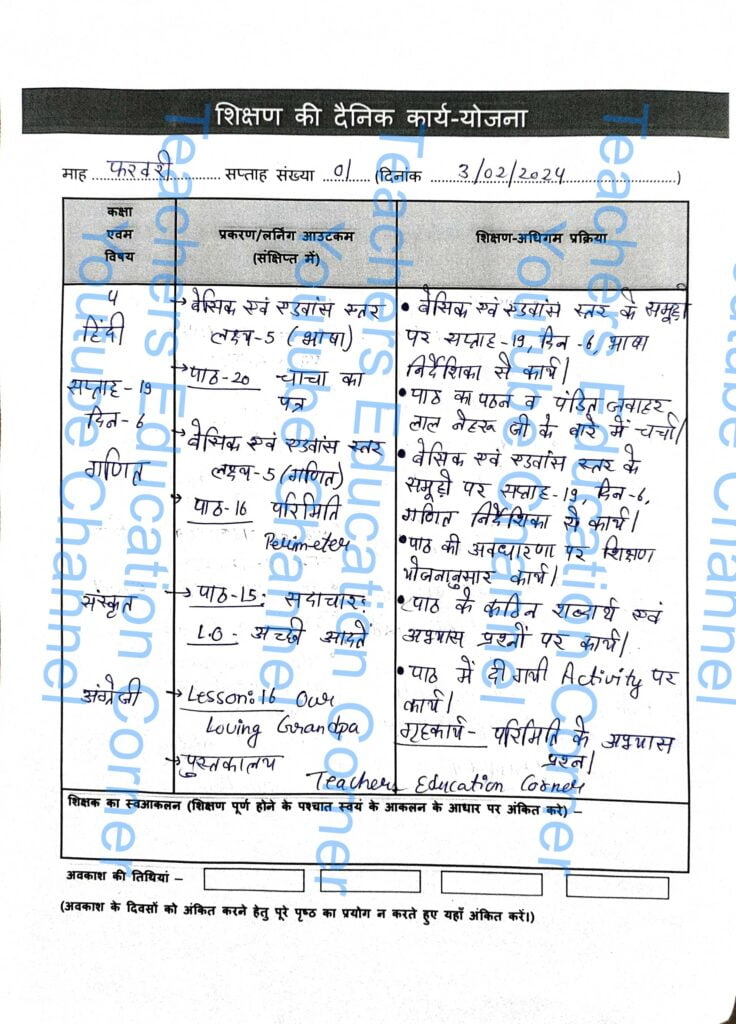 शिक्षण की दैनिक कार्य-योजना
माह फरवरी सप्ताह संख्या 01 (दिनांक 3/02/2024)
कक्षा
एवम
विषय
प्रकरण/लर्निंग आउटकम
(संक्षिप्त में)
शिक्षण-अधिगम प्रक्रिया
हिंदी
सप्ताह-19
दिन-6
गणित
संस्कृत
अंग्रेजी
→ बेसिक एवं एडवांस स्तर
लक्ष्य-5 (भाषा)
→ पाठ-20 चाचा का
पत्र
→ बेसिक एवं एडवांस स्तर
लक्ष्य-5 (गणित)
→ पाठ-16 परिमिति
Perimeter
→ पाठ-15: सदाचार:
L.O- अच्छी आदतें
→ Lesson:16 Our
Loving Grandpa
→ पुस्तकालय
• बेसिक एवं एडवांस स्तर के समूहों
पर सप्ताह-19, दिन-6, भाषा
निर्देशिका से कार्य।
• पाठ का पठन व पंडित जवाहर
लाल नेहरू जी के बारे में चर्चा।
• बेसिक एवं एडवांस स्तर के
समूहों पर सप्ताह-19, दिन-6,
गणित निर्देशिका से कार्य।
• पाठ की अवधारणा पर शिक्षण
योजनानुसार कार्य।
• पाठ के कठिन शब्दार्थ एवं
अभ्यास प्रश्नों पर कार्य।
• पाठ में दी गयी Activity पर
कार्य।
गृहकार्य- परिमिति के अभ्यास
प्रश्न।
Teachers Education Corner
शिक्षक का स्वआकलन (शिक्षण पूर्ण होने के पश्चात स्वयं के आकलन के आधार पर अंकित करे) –
अवकाश की तिथियां –
(अवकाश के दिवसों को अंकित करने हेतु पूरे पृष्ठ का प्रयोग न करते हुए यहाँ अंकित करें।)
Teachers Education Corner
Youtube Channel
Teachers Education Corner
Youtube Channel
Teachers Education Corner
Youtube Channel